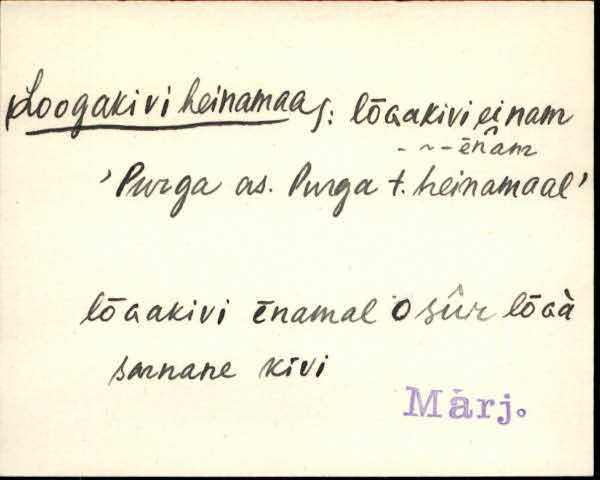 Loogakivi heinamaa: lōɢakivi einam
- ~ - ēnâm
'Purga as. Purga t. heinamaal'
lōɢakivi ēnamal o sûr lōɢà
sarnane kivi
Märj.